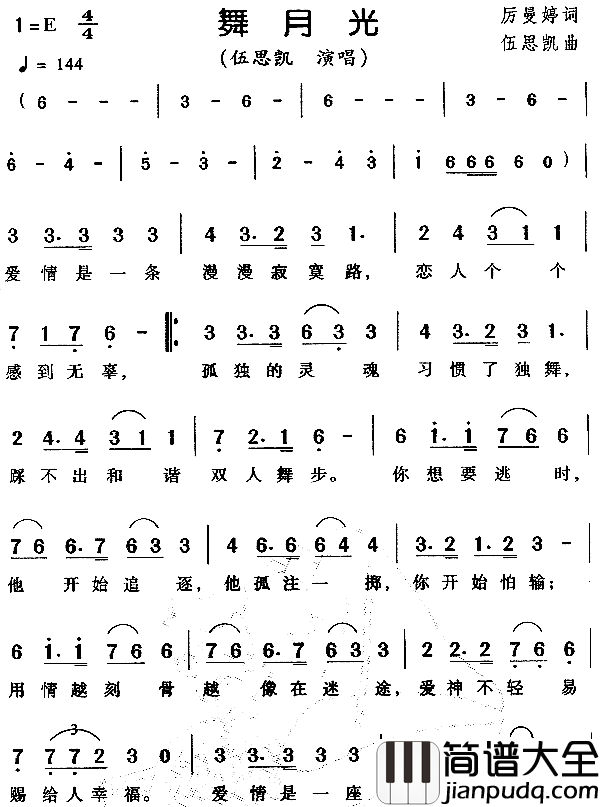 1=E 4/4 舞月光 厉曼婷 词
♩= 144 (伍思凯 演唱) 伍思凯 曲
( 6 - - - | 3 - 6 - | 6 - - - | 3 - 6 -
6 - 4 - | 5 - 3 - | 2 - 4 3 | 1 6 6 6 6 0 )
3 3. 3 3 3 | 4 3. 2 3 1. | 2 4 3 1 1
爱 情 是 一 条 漫 漫 寂 寞 路， 恋 人 个 个
7 1 7 6 - |: 3 3. 3 6 3 3 | 4 3. 2 3 1.
感 到 无 辜， 孤 独 的 灵 魂 习 惯 了 独 舞，
2 4. 4 3 1 1 | 7 2. 1 6 - | 6 1. 1 7 6 6
踩 不 出 和 谐 双 人 舞 步。 你 想 要 逃 时，
7 6 6. 7 6 3 3 | 4 6. 6 6 4 4 | 3. 2 1. 2 3 -
他 开 始 追 逐， 他 孤 注 一 掷， 你 开 始 怕 输；
6 1. 1 7 6 6 | 7 6 6. 7 6 3 3 | 2 2. 2 7 6 6
用 情 越 刻 骨 越 像 在 迷 途， 爱 神 不 轻 易
7 7 7 2 3 0 | 3 3. 3 3 3
3
赐 给 人 幸 福。 爱 情 是 一 座
简谱大全
jianpudq.com